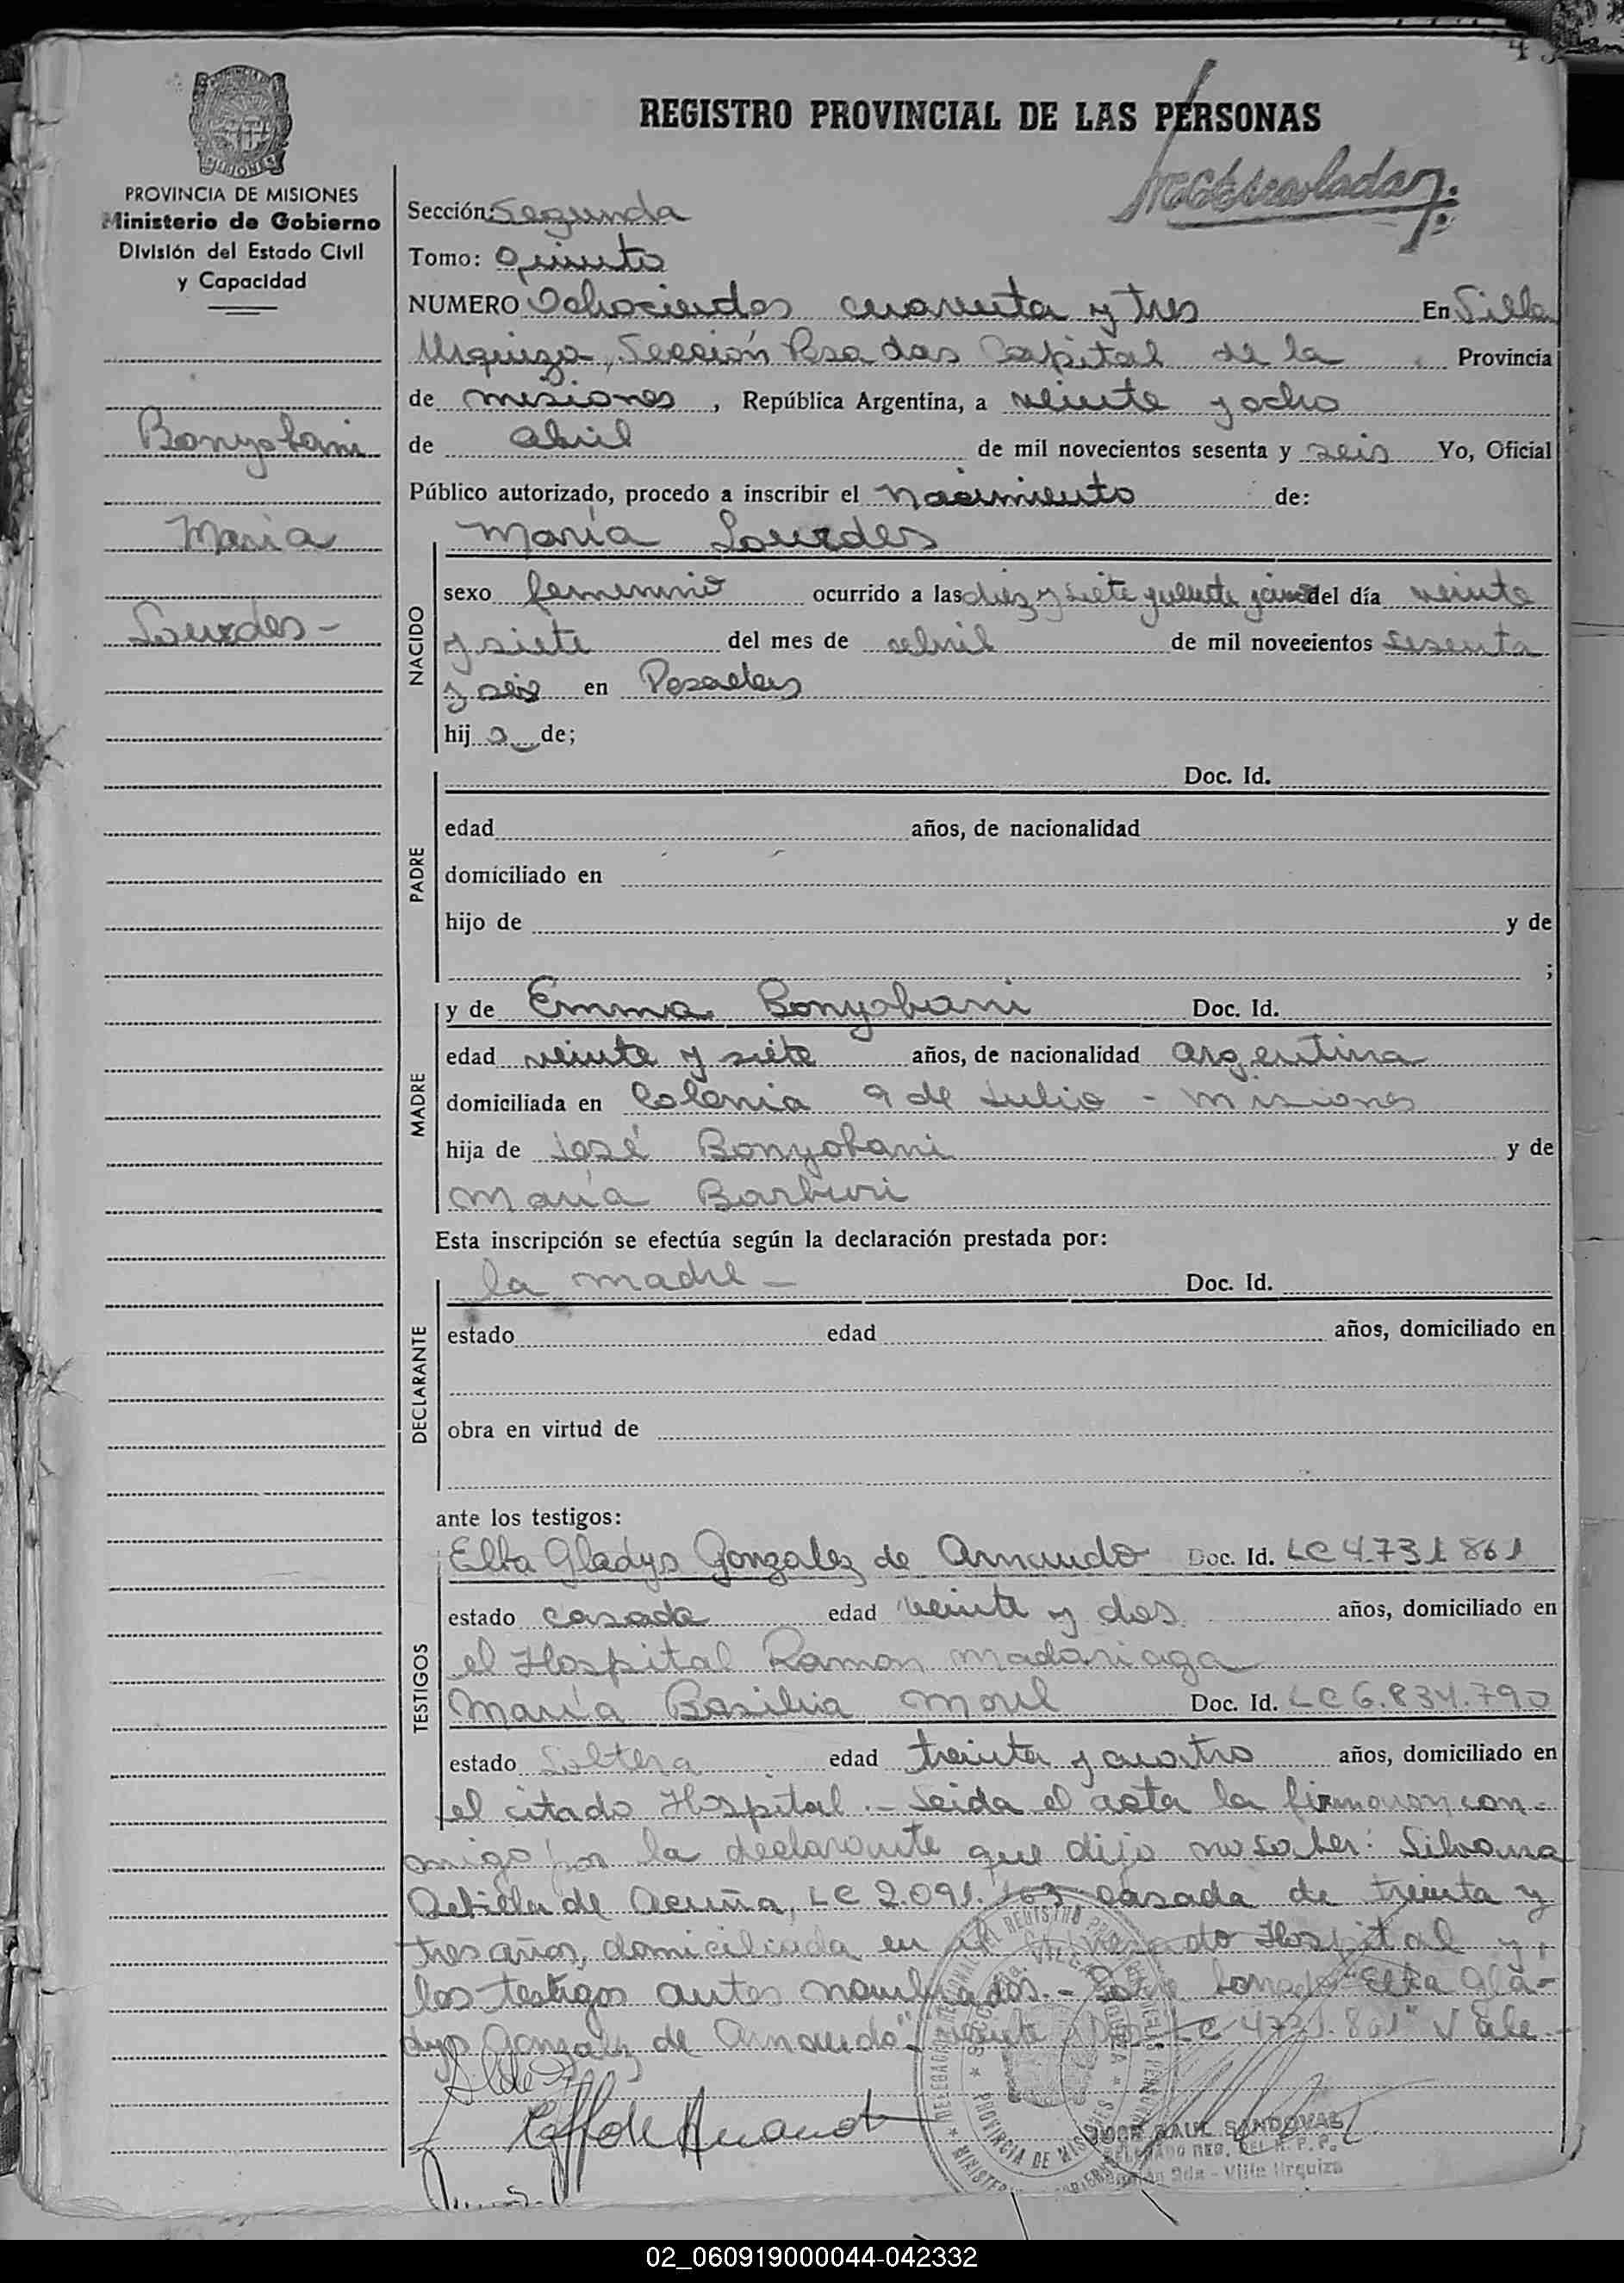 REGISTRO PROVINCIAL DE LAS PERSONAS
MISIONES
PROVINCIA DE MISIONES
Ministerio de Gobierno
División del Estado Civil
y Capacidad
Bonyobani
Maria
Lourdes -
Sección: Segunda
Tomo: Quinto
NUMERO Ochocientos cuarenta y tres En Villa
Urquiza, Sección Posadas Capital de la Provincia
de misiones, República Argentina, a veinte y ocho
de abril de mil novecientos sesenta y seis Yo, Oficial
Público autorizado, procedo a inscribir el Nacimiento de:
María Lourdes
NACIDO
sexo femenino ocurrido a las diez y siete y veinte y cinco del día veinte
y siete del mes de abril de mil novecientos sesenta
y seis en Posadas
hija de;
PADRE
Doc. Id.
edad años, de nacionalidad
domiciliado en
hijo de y de
;
MADRE
y de Emma Bonyobani Doc. Id.
edad veinte y siete años, de nacionalidad argentina
domiciliada en Colonia 9 de Julio - Misiones
hija de José Bonyobani y de
María Barburi
Esta inscripción se efectúa según la declaración prestada por:
DECLARANTE
la madre - Doc. Id.
estado edad años, domiciliado en
obra en virtud de
ante los testigos:
TESTIGOS
Elba Gladys Gonzalez de Arnaudo Doc. Id. LC 4.731 861
estado casada edad veinte y dos años, domiciliado en
el Hospital Ramon Madariaga
María Basilia Doc. Id. LC 6.834.790
estado Soltera edad treinta y cuatro años, domiciliado en
el citado Hospital.- Leida el acta la firmaron con-
migo por la declarante que dijo no saber: Silvana
de Acuña, LC 2.091.163 casada de treinta y
tres años, domiciliada en el Hospital y
los testigos antes nombrados.- Elba Gla-
dys Gonzalez de Arnaudo" LC 4731.861" Vale.-
SANDOVAL
Villa Urquiza
PROVINCIA DE MISIONES
02_060919000044-042332